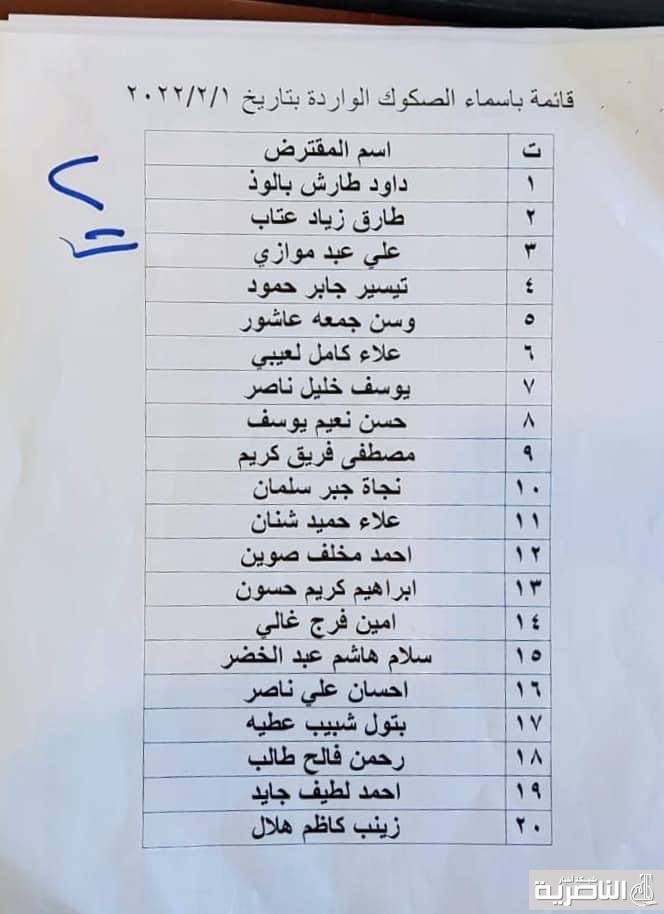 قائمة باسماء الصكوك الواردة بتاريخ ٢٠٢٢/٢/١
ت اسم المقترض
١ داود طارش بالوذ
٢ طارق زياد عتاب
٣ علي عبد موازي
٤ تيسير جابر حمود
٥ وسن جمعه عاشور
٦ علاء كامل لعيبي
٧ يوسف خليل ناصر
٨ حسن نعيم يوسف
٩ مصطفى فريق كريم
١٠ نجاة جبر سلمان
١١ علاء حميد شنان
١٢ احمد مخلف صوين
١٣ ابراهيم كريم حسون
١٤ امين فرج غالي
١٥ سلام هاشم عبد الخضر
١٦ احسان علي ناصر
١٧ بتول شبيب عطيه
١٨ رحمن فالح طالب
١٩ احمد لطيف جايد
٢٠ زينب كاظم هلال
شبكة اخبار
الناصرية